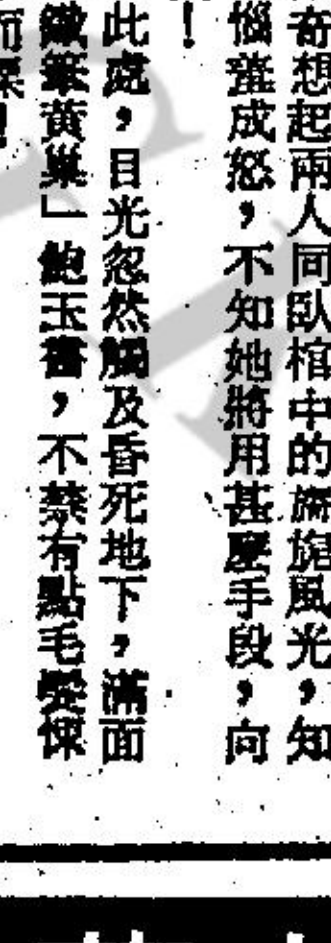 奇想起兩人同臥棺中的旖旎風光，知
惱羞成怒，不知她將用甚麼手段，向
！
此處，目光忽然觸及昏死地下，滿面
鐵筆黃巢」鮑玉書，不禁有點毛髮悚